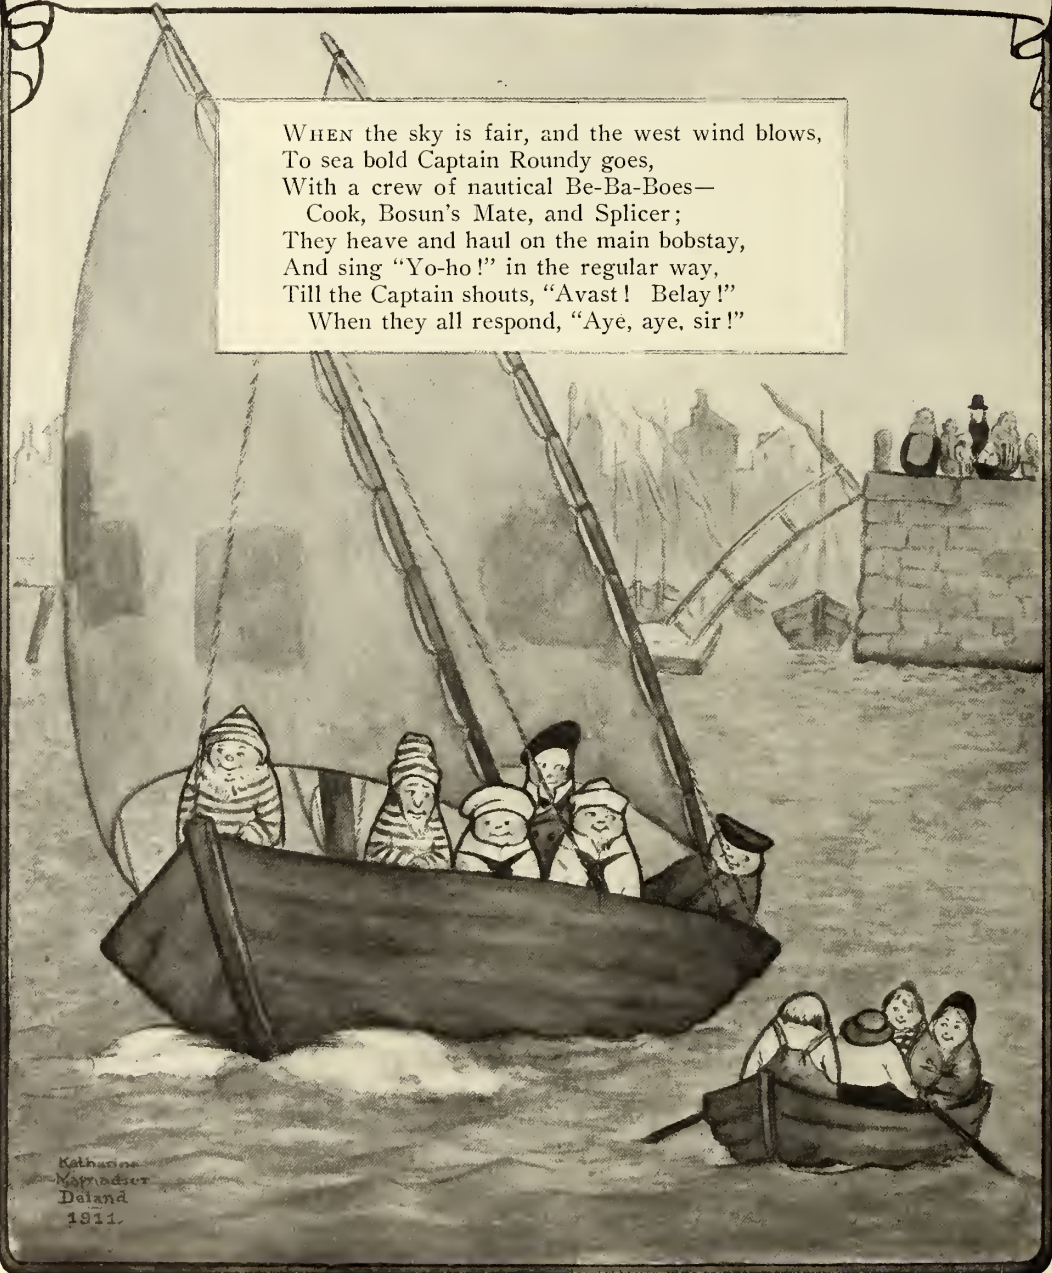 WHEN the sky is fair, and the west wind blows,
To sea bold Captain Roundy goes,
With a crew of nautical Be-Ba-Boes—
Cook, Bosun's Mate, and Splicer;
They heave and haul on the main bobstay,
And sing "Yo-ho!" in the regular way,
Till the Captain shouts, "Avast! Belay!"
When they all respond, "Aye, aye, sir!"
Katharine
Deland
1911.